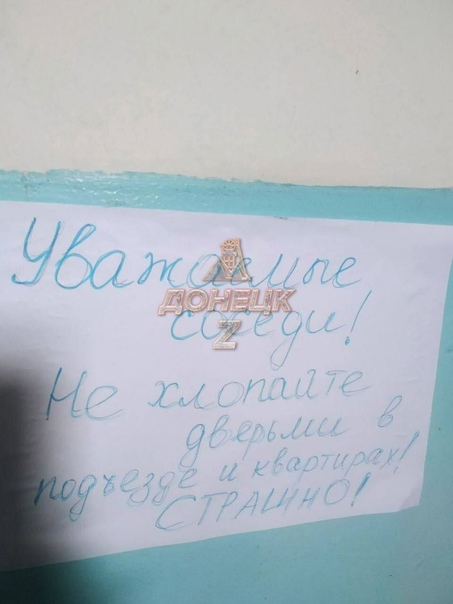 Уважаемые
соседи!
ДОНЕЦК
Z
Не хлопайте
дверьми в
подъезде и квартирах!
СТРАШНО!